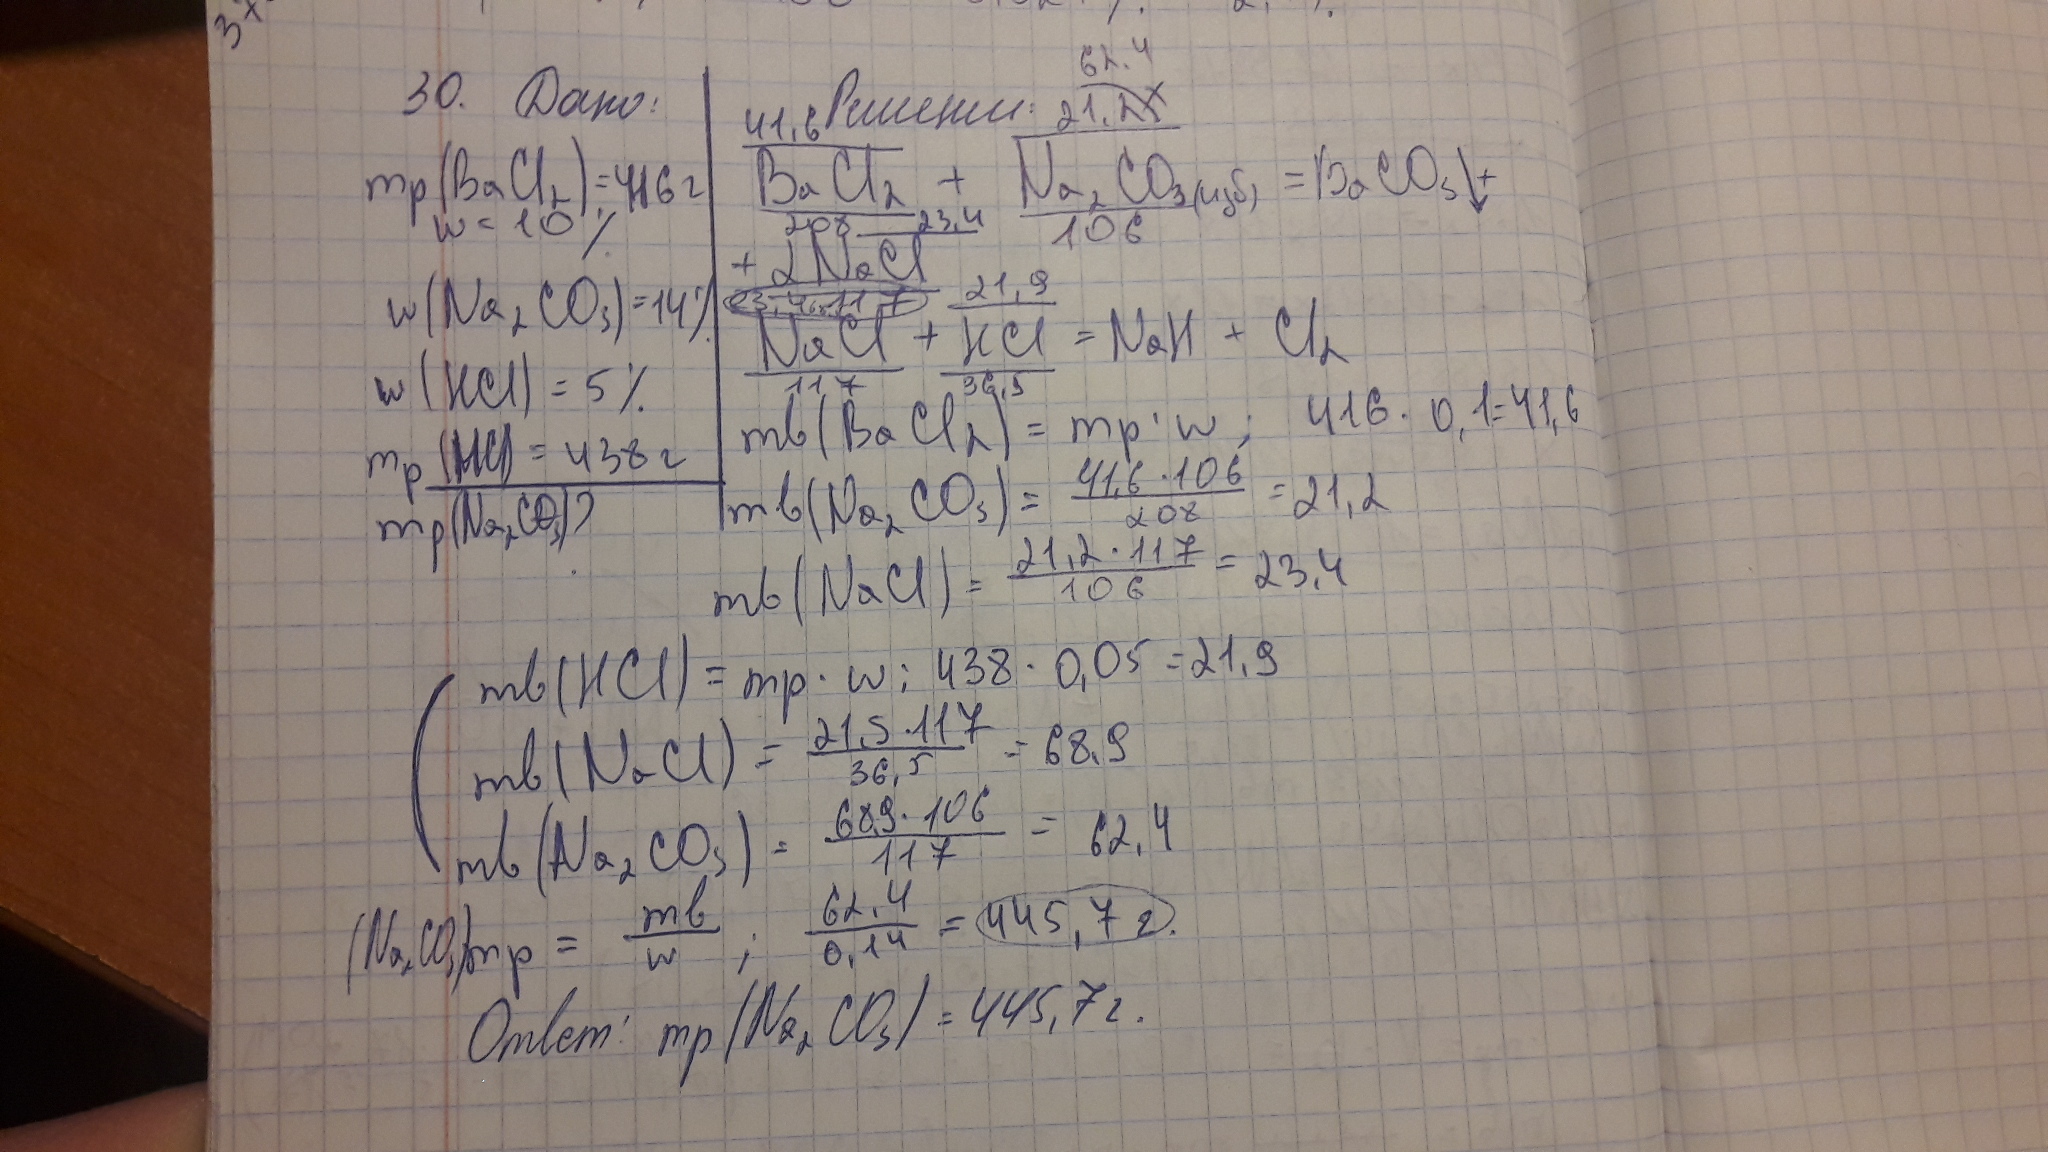 30. Дано:
mр(BaCl2)=416г
w=10%
w(Na2CO3)=14%
w(HCl)=5%
mр(HCl)=438г
mр(Na2CO3)?
Решение:
62.4
41,6 21,2
BaCl2 + Na2CO3(изб) = BaCO3↓+
208 23,4 106
+ 2NaCl
23,4 117 21,9
NaCl + HCl = NaH + Cl2
117 36,5
mв(BaCl2) = mр·w; 416·0,1=41,6
mв(Na2CO3) = 41,6·106/208 = 21,2
mв(NaCl) = 21,2·117/106 = 23,4
mв(HCl) = mр·w; 438·0,05=21,9
mв(NaCl) = 21,5·117/36,5 = 68,9
mв(Na2CO3) = 68,9·106/117 = 62,4
(Na2CO3)mр = mв/w; 62,4/0,14 = 445,7г.
Ответ: mр(Na2CO3)=445,7г.